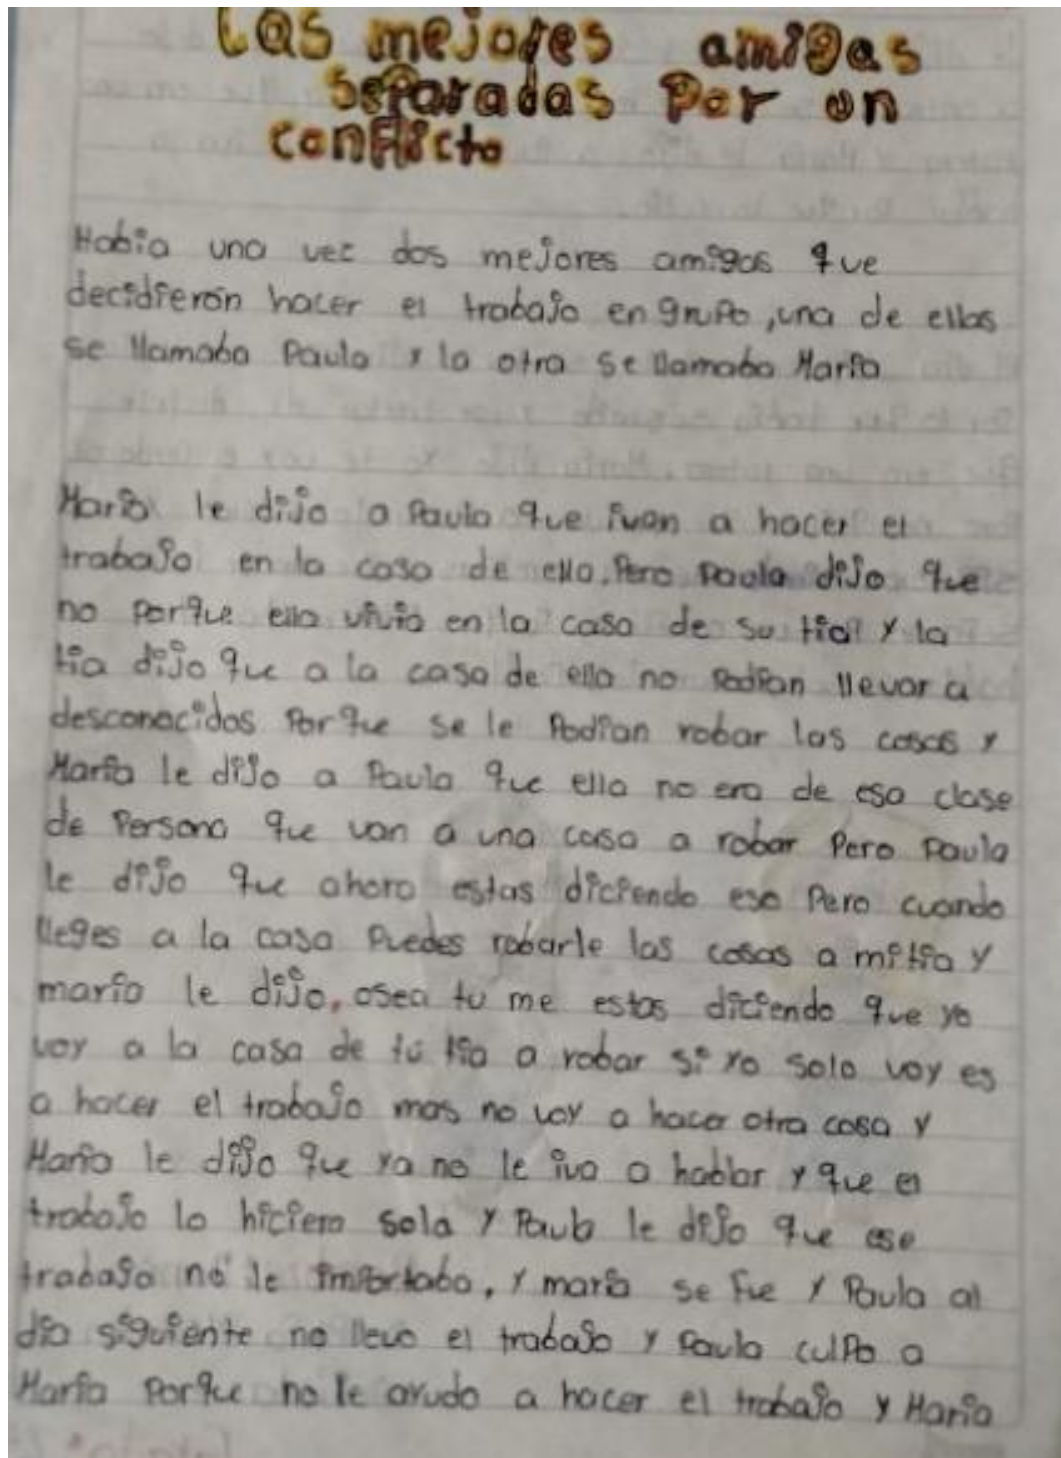 Las mejores amigas
separadas Por un
conflicto
Habia una vez dos mejores amigas que
decidieron hacer el trabajo en grupo, una de ellas
se llamaba Paula y la otra se llamaba María
María le dijo a Paula que ivan a hacer el
trabajo en la casa de ella. Pero Paula dijo que
no porque ella vivia en la casa de su tia y la
tia dijo que a la casa de ella no podian llevar a
desconocidos Porque se le Podian robar las cosas y
María le dijo a Paula que ella no era de esa clase
de Persona que van a una casa a robar Pero Paula
le dijo que ahora estas diciendo eso Pero cuando
lleges a la casa Puedes robarle las cosas a mi tia y
maria le dijo, osea tu me estas diciendo que yo
voy a la casa de tu tia a robar si yo solo voy es
a hacer el trabajo mas no voy a hacer otra cosa y
Maria le dijo que ya no le iva a hablar y que el
trabajo lo hiciera sola y Paula le dijo que ese
trabajo no le importaba, y maria se fue y Paula al
dia siguiente no llevo el trabajo y Paula culpo a
Maria Porque no le ayudo a hacer el trabajo y Maria